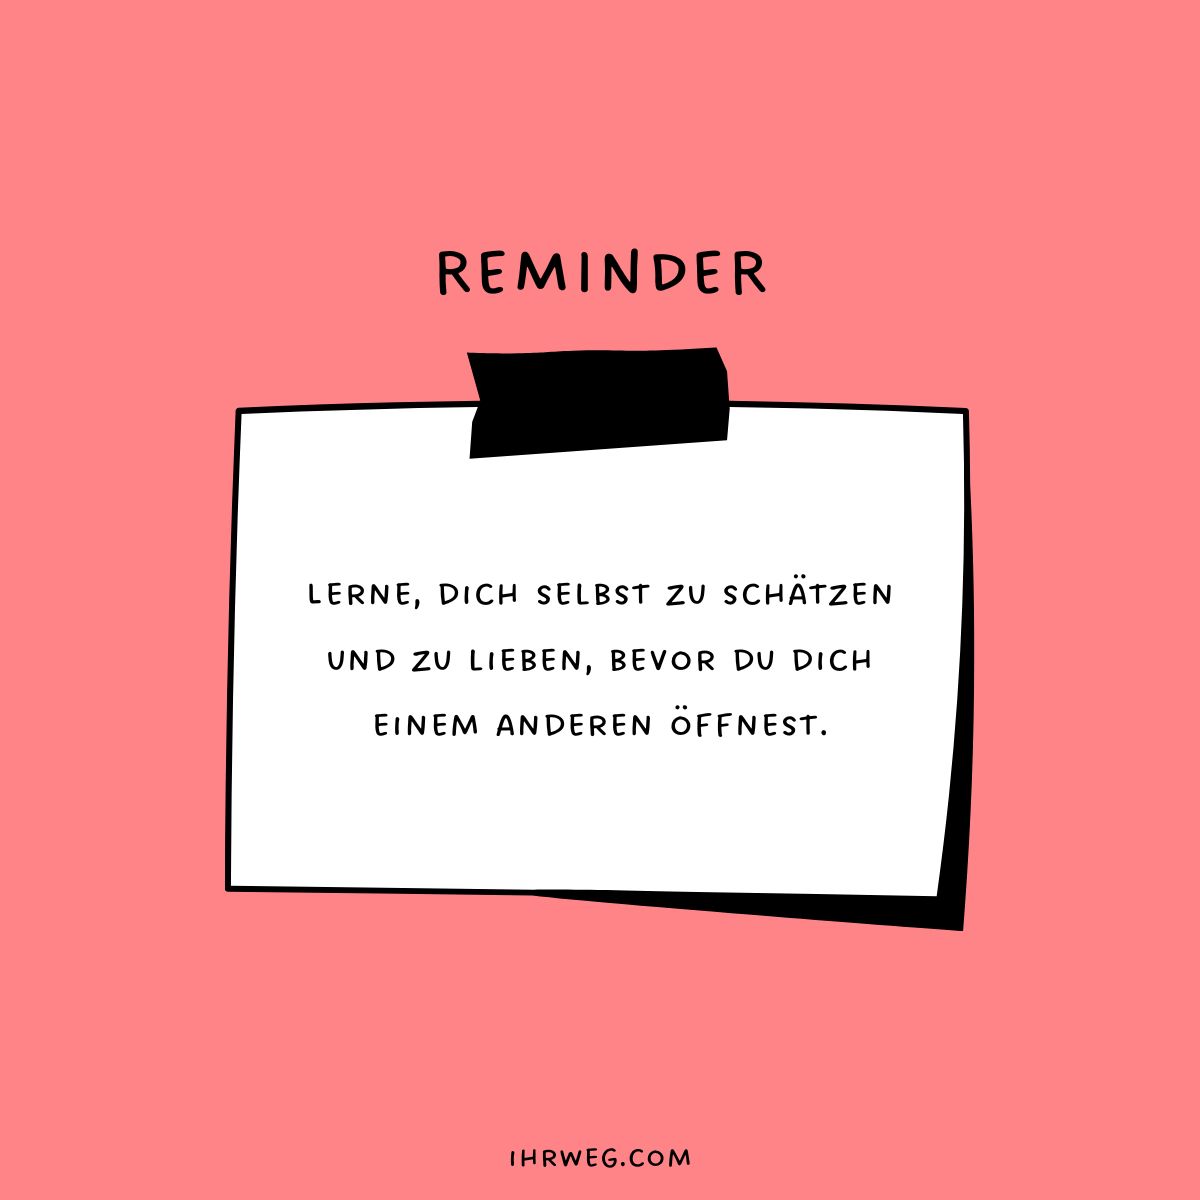 REMINDER
LERNE, DICH SELBST ZU SCHÄTZEN
UND ZU LIEBEN, BEVOR DU DICH
EINEM ANDEREN ÖFFNEST.
IHRWEG.COM